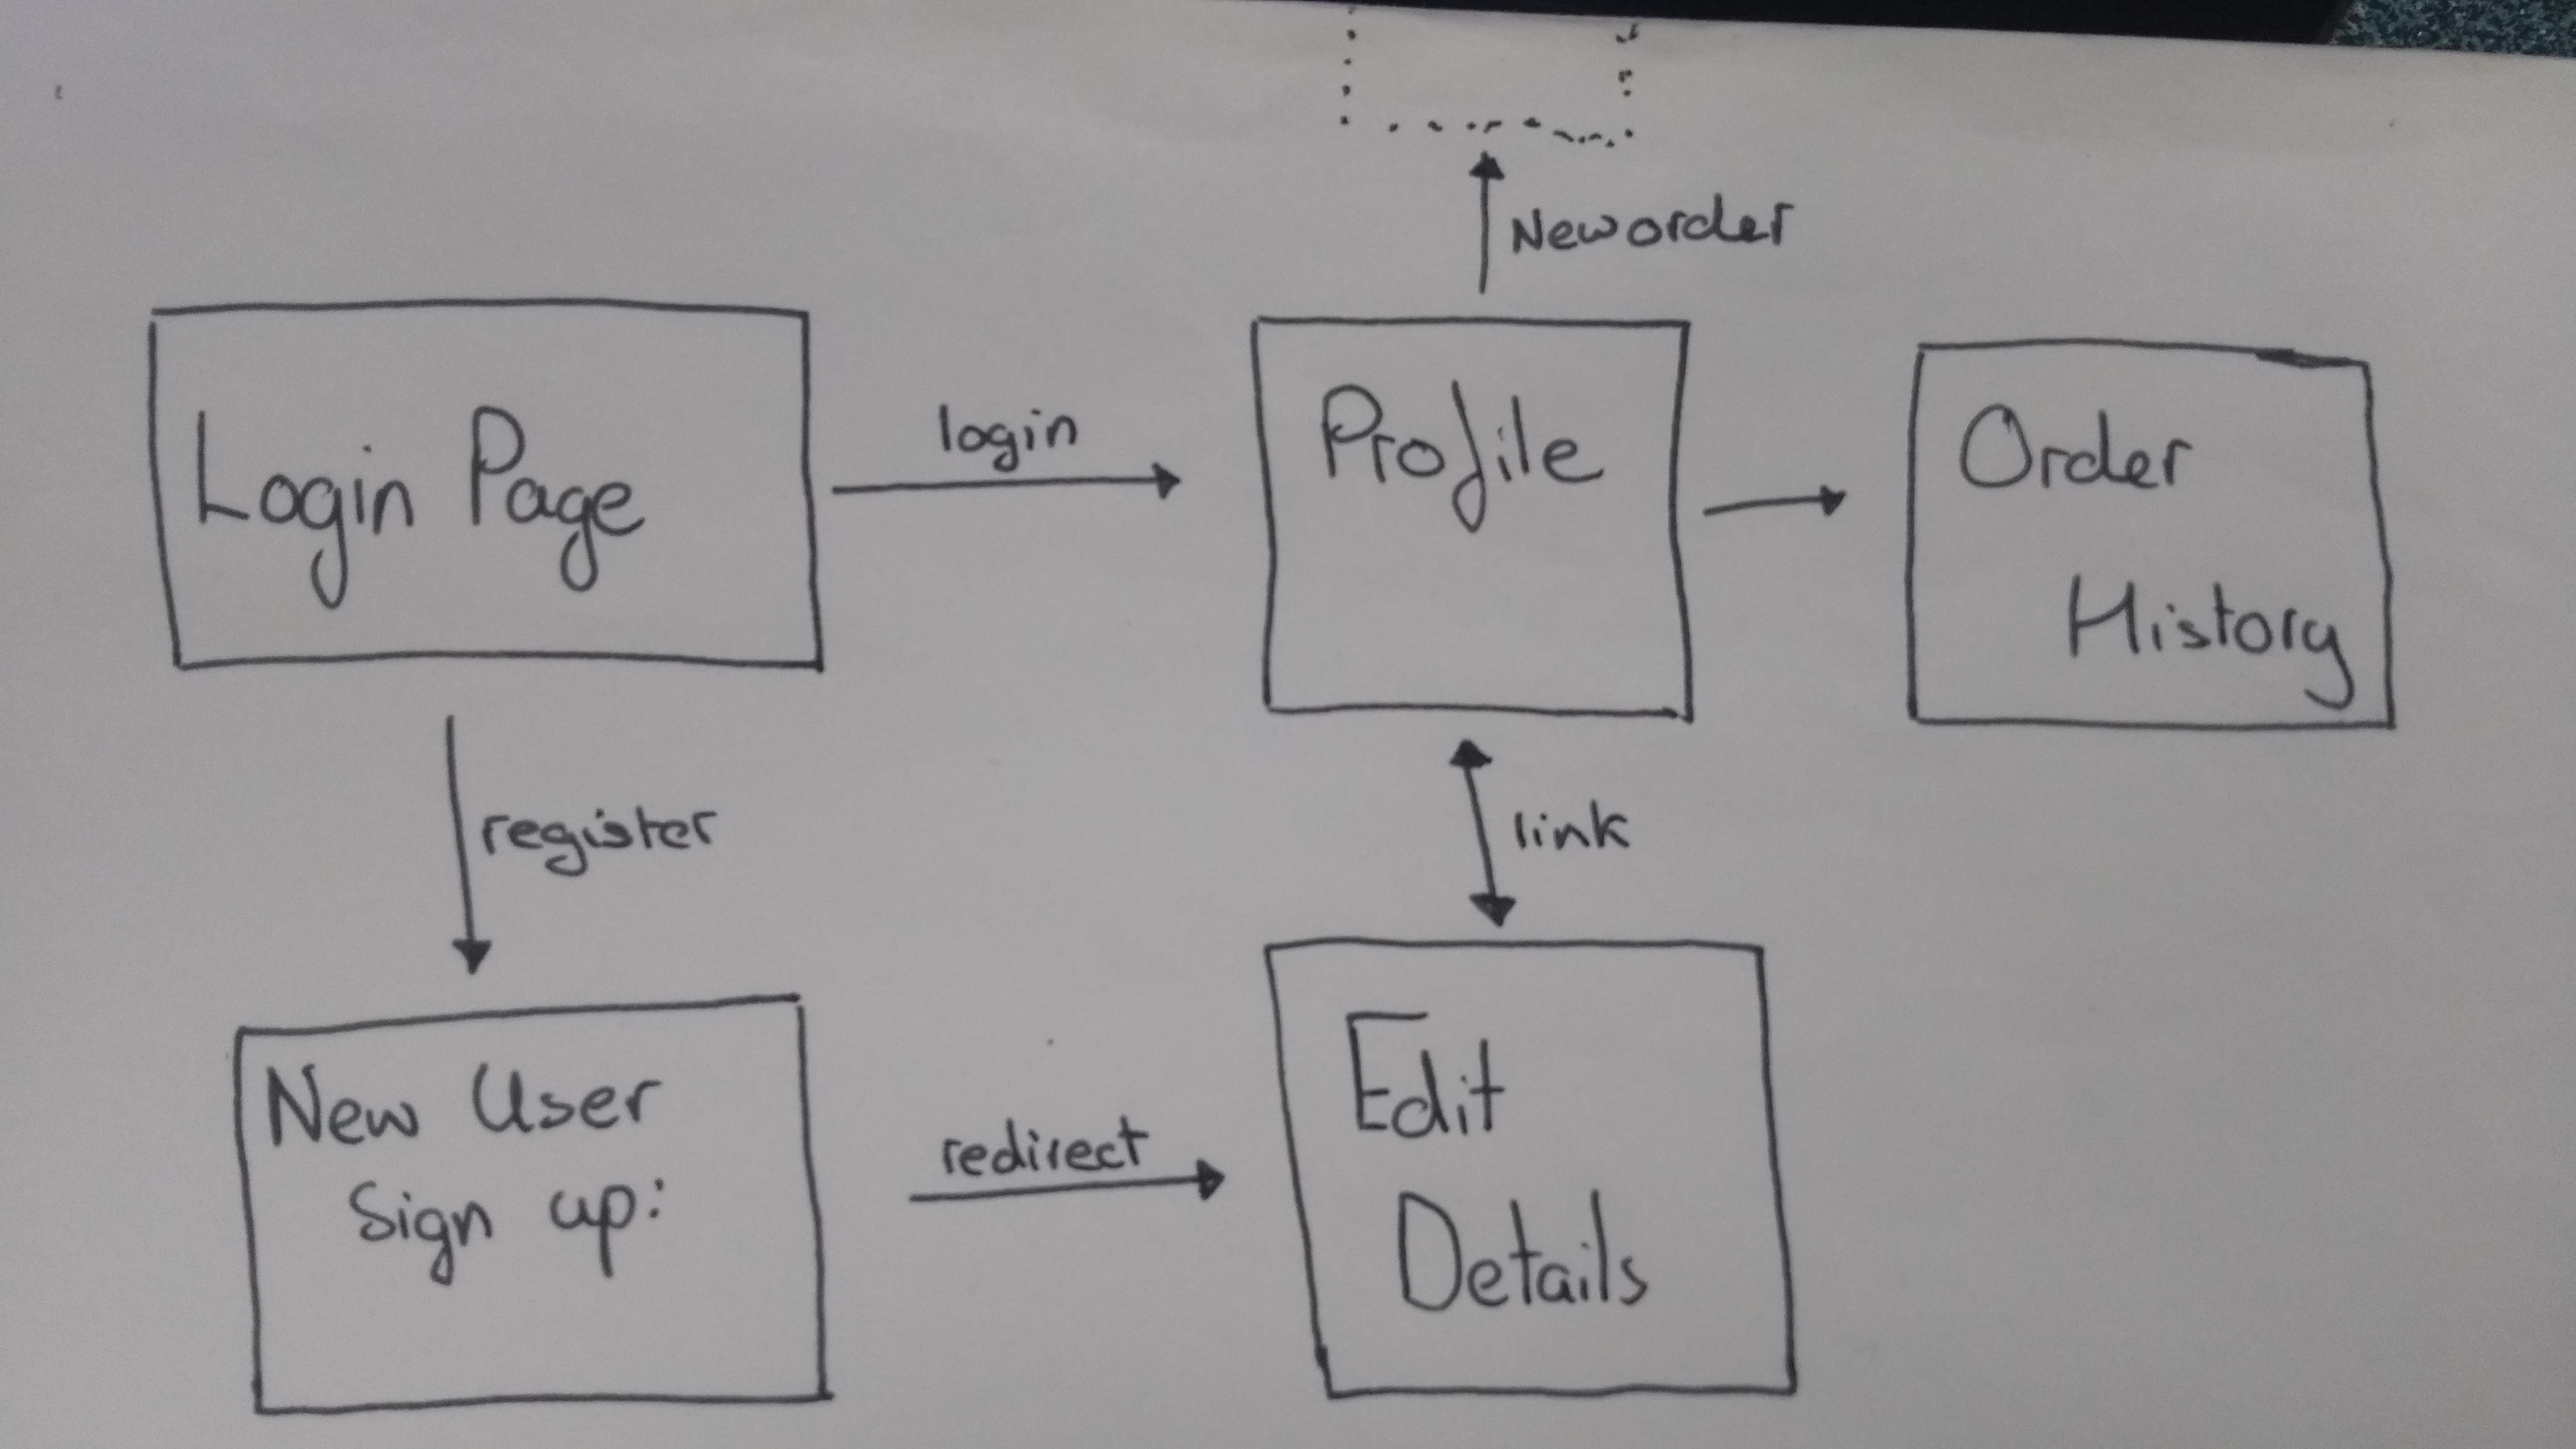 New order
Login Page
login
Profile
Order
History
register
link
New User
Sign up:
redirect
Edit
Details